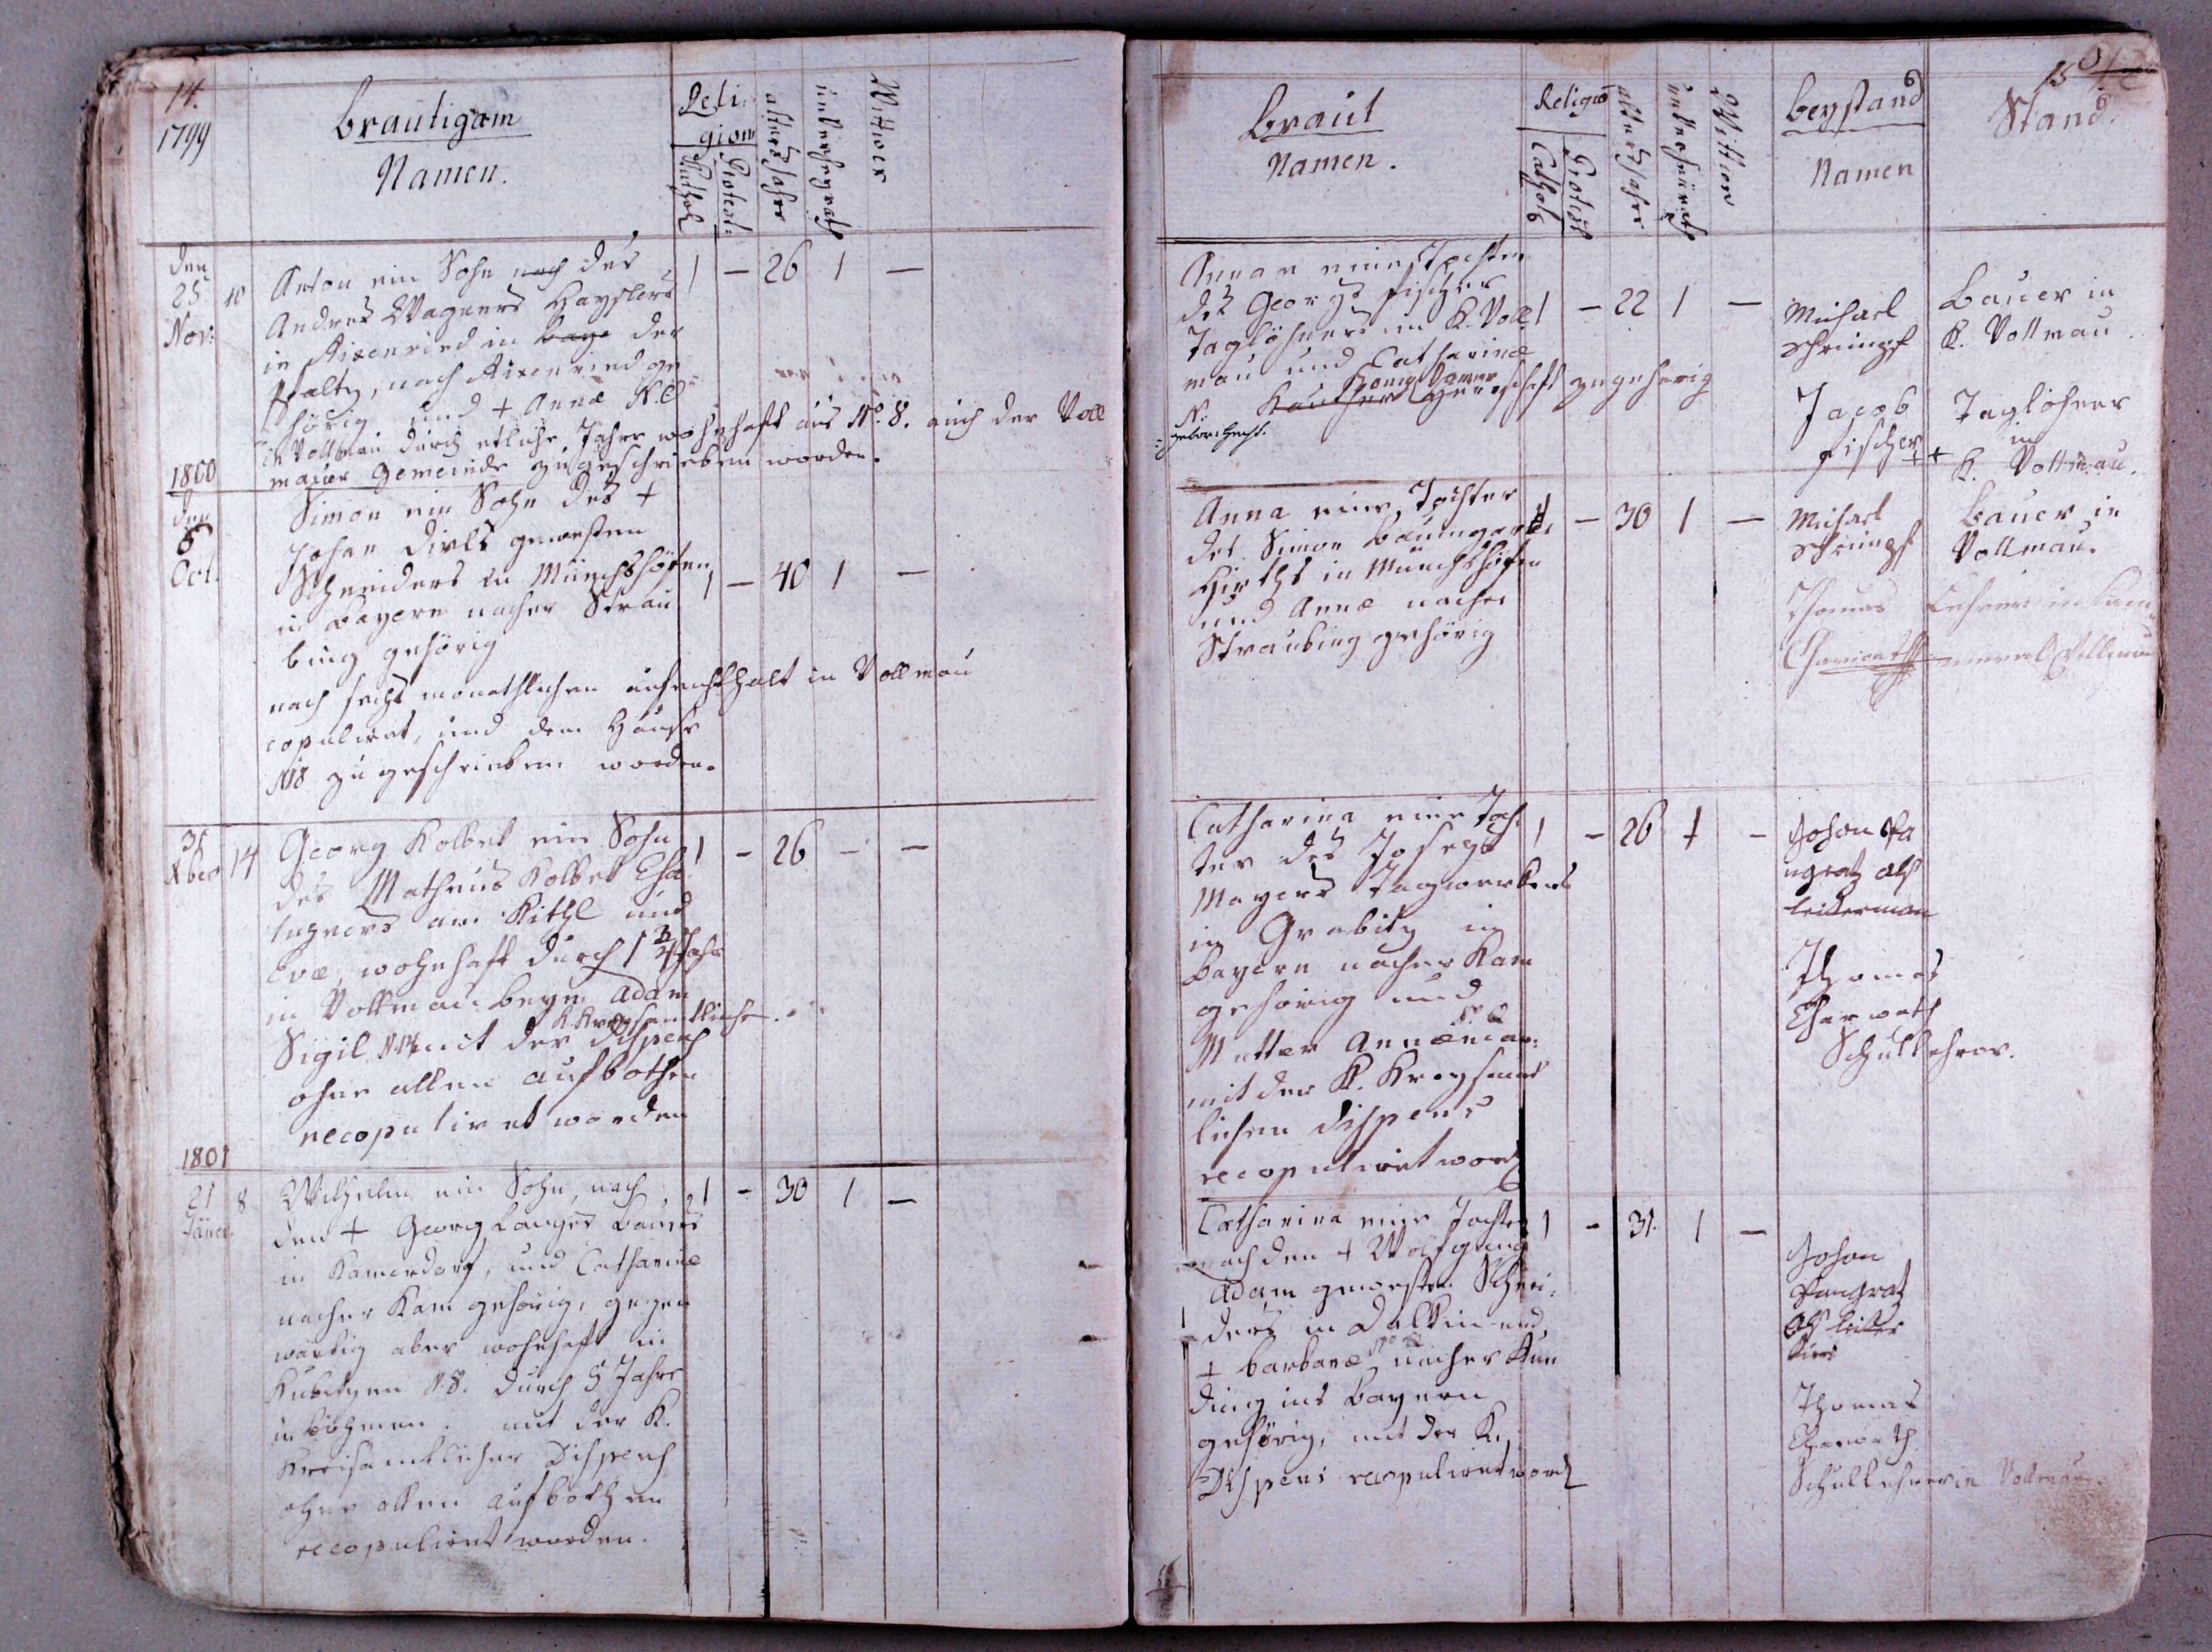 14.
1799
Brautigam
Namen.
Reli-
gion
Kathol
Protest:
alters Jahre
unverheyrath
Wittwer
den
25
Nov:
10
Anton ein Sohn nach des
Andreß Wagners Hayslers
in Rixenried in Baye der
Pfaltz, nach Rixenried ge
hörig und + Annæ
1 — 26 1 —
in Vollmau durch etliche Jahre wohnhaft aus No. 8. auch der Voll
mauer Gemeinde zugeschrieben worden.
1800
den
8
Oct.
Simon ein Sohn des +
Johan Dirls gewesten
Schneiders in Münchshöfen
in Bayern nacher Strau
bing gehörig
1 — 40 1 —
nach sechs monathlichen aufenthalt in Vollmau
copulirt, und dem Hause
N18 zugeschrieben worden.
31
Xber
14
Georg Kolbek ein Sohn
des Matheus Kolbek
am Rithl und
Evæ, wohnhaft durch 1 3/4 Jahr
in Vollmau beym Adam
Sigil mit der K. Kreysamtlicher Dispens
ohne allen aufbothen
recopulirt worden
1 — 26 — —
1801
21
Jäner.
8
Wilhelm ein Sohn, nach
den + Georg Langes Bauers
in Kamerdorf, und Catharinæ
nacher Kam gehörig, gegen
wärtig aber wohnhaft in
Kubitzen N.8. durch 5 Jahre
in Böhmen. mit der K.
Kreisämtlicher Dispens
ohne allen aufbothen
recopulirt worden.
1 — 30 1 —
15
Braut
Namen.
Religio
Cathol
Protest
alters Jahre
unverheürath
Wittwe
Beystand
Namen
Stand.
Anna eine Tochter
des Georgs Fischer
Taglöhners in K. Voll
mau und Catharinæ
Herrschaft zugehörig
gebor. Hecht.
1 — 22 1 —
Michael
Schrimpf
Bauer in
K. Vollmau
Jacob
Fischer +
Taglöhner
in
K. Vollmau.
Anna eine Tochter
des Simon Baumgart
Hirths in Münchshöfen
und Annæ nacher
Straubing gehörig
1 — 30 1 —
Michael
Schrimpf
Bauer in
Vollmau.
Thomas
Lehrer in
Vollmau
Catharina eine Toch
ter des Joseph
Mayers Tagwerkers
in Grabitz in
Bayern nacher Kam
gehörig und
Mutter
mit der K. Kreysamt
lichen Dispens
recopulirt word
1 — 26 1 —
Johan Pa
ngratz als
Thomas
Charwath
Schullehrer.
Catharina eine Tochter
nach den + Wolfgang
Adam gewesten Schnei
ders in Dalkin und
+ Barbaræ nacher
ding ins Bayern
gehörig, mit der K.
Dispens recopulirt word
1 — 31. 1 —
Johan
Pangratz
als
Thomas
Charwath
Schullehrer in Vollmau.